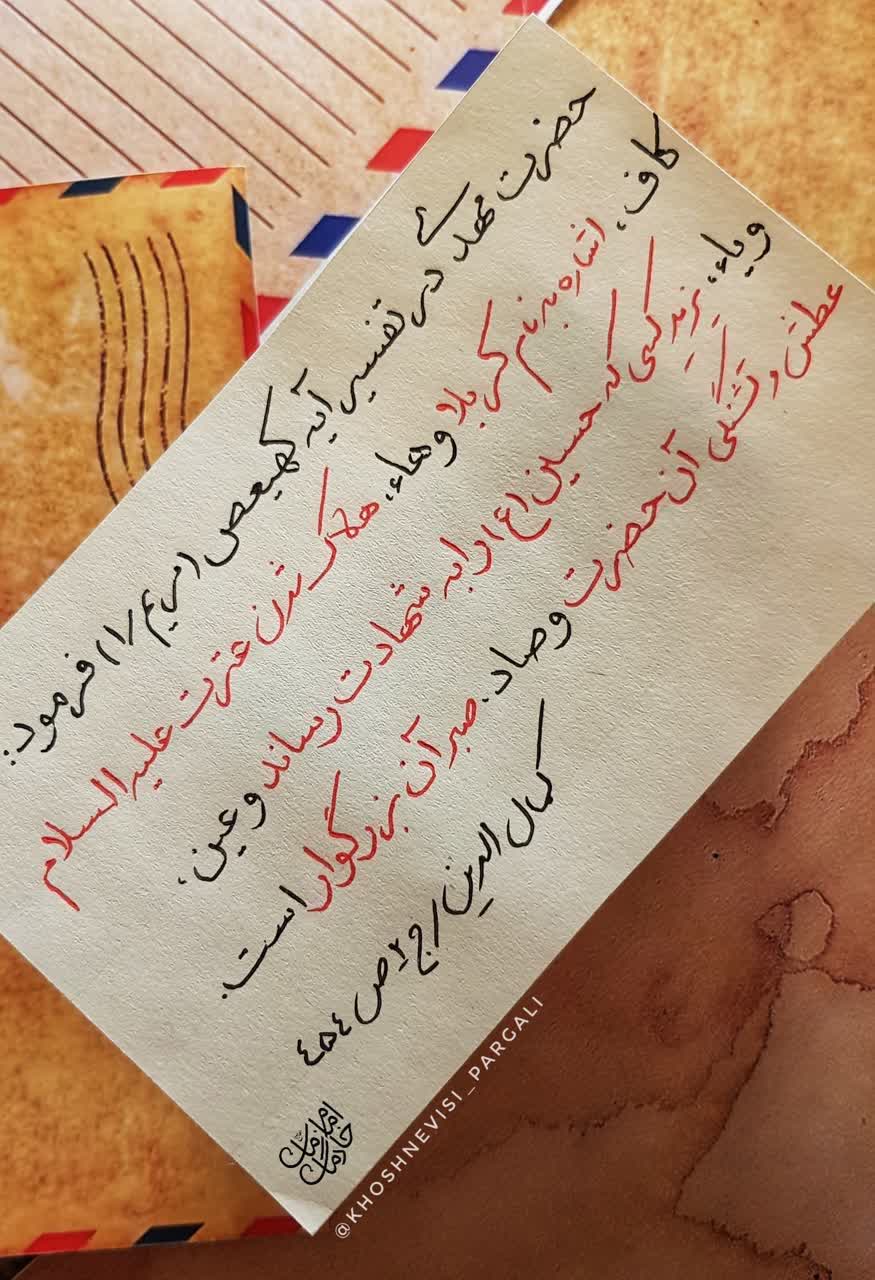 حضرت مهدے در تفسیر آیه کهیعص (مریم/۱) فرمود:
کاف، اشاره به نام کربلا و هاء، هلاک شدن عترت علیه السلام
و یاء، یزیدِ کسی که حسین (ع) را به شهادت رساند و عین،
عطش و تشنگی آن حضرت و صاد، صبر آن بزرگوار است.
کمال الدین/ج۲ ص ٤٥٤
@KHOSHNEVISI_PARGALI